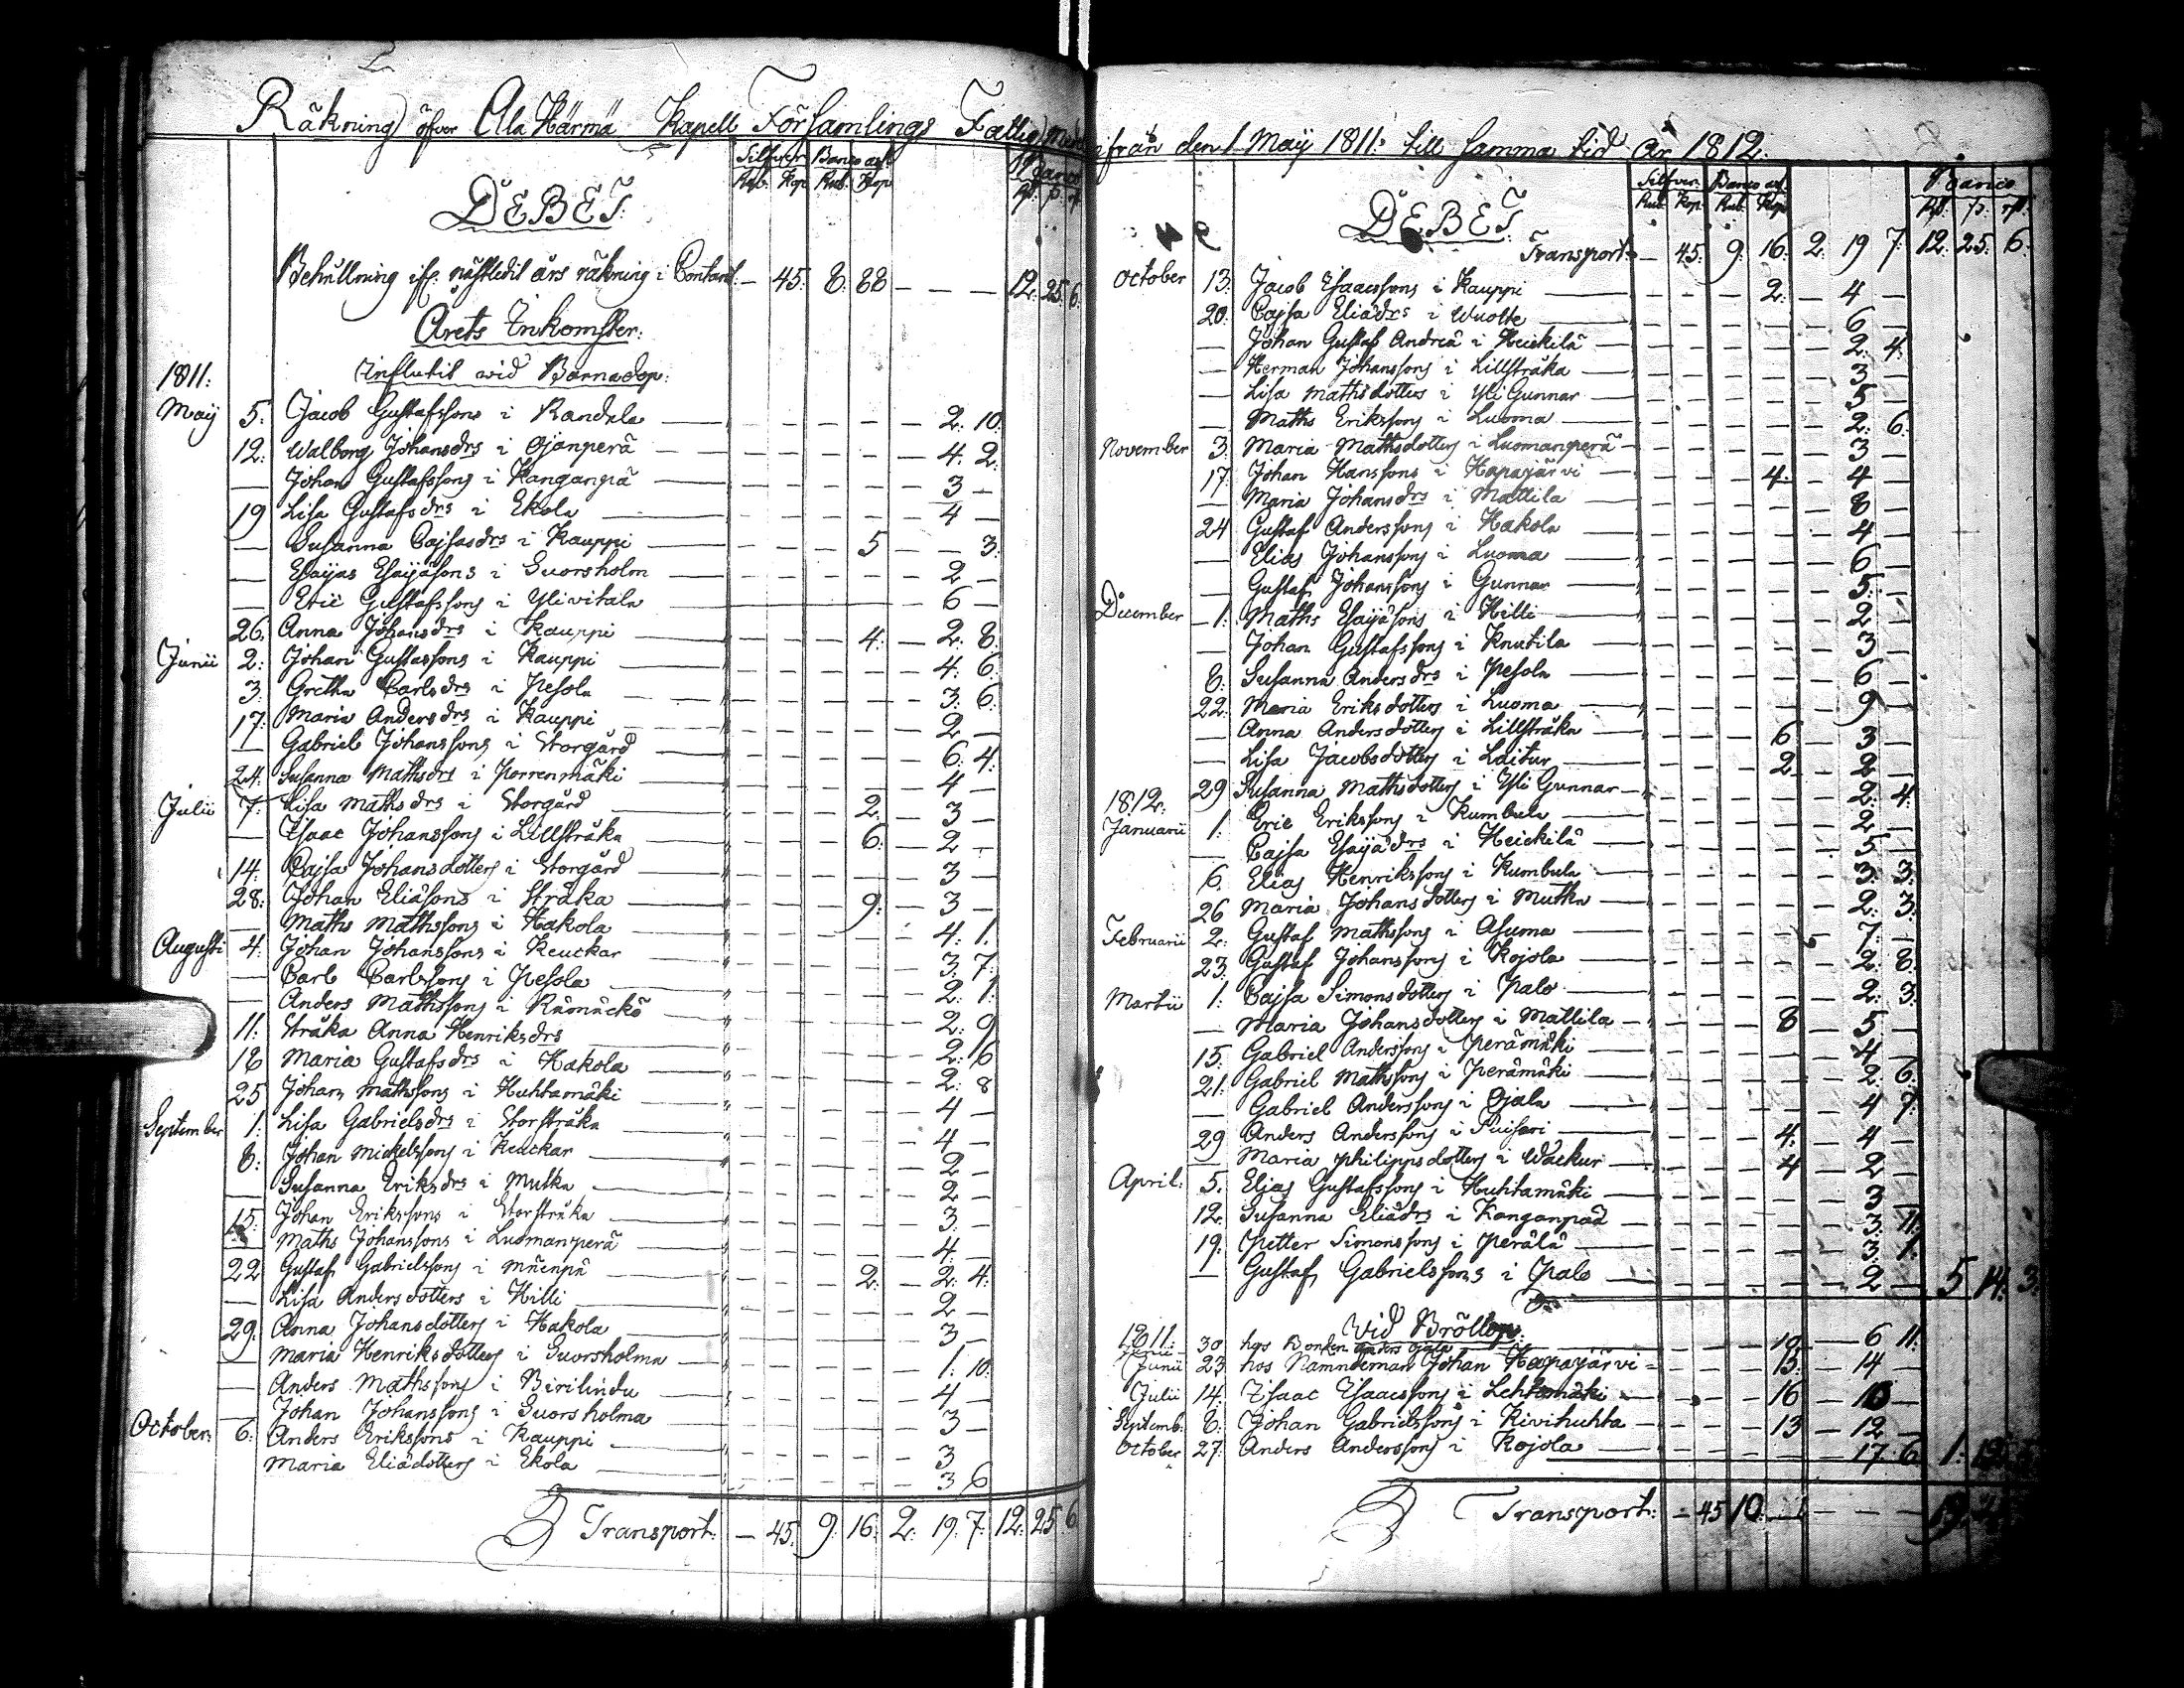 Räkning öfver Ala Härmä Kapell Församlings Fattig
DEBET:
Silfver Banco ass. Banco
Rub. Kop. Rub. Kop. Rd. ß. rst.
Behållning ifr. nästledit års räkning i Contant — 45. 8. 88 — — — 12. 25. 6.
Årets Inkomster:
1811: Influtit wid Barnadop:
Maÿ 5. Jacob Gustafssons i Randala — 2. 10.
12. Walborg Johansdrs i Ojanperä — 4. 2.
— Johan Gustafssons i Kanganpä — 3 —
19 Lisa Gustafsdrs i Ekola — 4 —
— Susanna Cajsasdrs i Kauppi — 5 — — 3.
— Esaijas Esaijäsons i Suorsholm — 2 —
— Eric Gustafssons i Ylivitala — 6 —
26. Anna Johansdrs i Kauppi — 4. — 2. 8.
Junii 2. Johan Gustafssons i Kauppi — 4. 6.
3. Gretha Carlsdrs i Pesola — 3. 6.
17. Maria Andersdrs i Kauppi — 2 —
— Gabriel Johanssons i Storgård — 6. 4.
24. Susanna Mathsdrs i Porrenmäki — 4 —
Julii 7. Lisa Mathsdrs i Storgård — 2. — 3 —
— Isaac Johanssons i Lillstråka — 6. — 2 —
14. Cajsa Johansdotters i Storgård — 3 —
28. Johan Eliäsons i Stråka — 9. — 3 —
— Maths Mathssons i Hakola — 4. 1.
Augusti 4. Johan Johanssons i Keuckar — 3. 7.
— Carl Carlssons i Pesola — 2. 1.
— Anders Mathssons i Rämäckö — 2. 9
11. Stråka Anna Henriksdrs — 2. 6
18 Maria Gustafsdrs i Hakola — 2. 8
25 Johan Mathssons i Huhtamäki — 4 —
September 1. Lisa Gabrielsdrs i Storstråka — 4 —
8. Johan Mickelssons i Keuckar — 2 —
— Susanna Eriksdrs i Mutka — 2 —
15. Johan Erikssons i Storstråka — 3. —
— Maths Johanssons i Luomanperä — 4. —
22 Gustaf Gabrielssons i Mäenpä — 2. — 2. 4.
— Lisa Andersdotters i Hilli — 2 —
29. Anna Johansdotters i Hakola — 3 —
— Maria Henriksdotters i Suorsholma — 1. 10.
— Anders Mathssons i Birilindu — 4 —
— Johan Johanssons i Suorsholma — 3 —
October. 6. Anders Erikssons i Kauppi — 3
Maria Eliädotters i Ekola — 3 6
Transport: — 45. 9. 16. 2. 19. 7. 12. 25 6
ifrån den 1 Maÿ 1811: till samma tid År 1812.
DEBET:
Silfver. Banco ass. Banco
Rub. Kop. Rub. Kop. Rd. ß. rst.
Transport: — 45. 9. 16. 2. 19 7. 12. 25. 6.
October 13. Jacob Esaacssons i Kauppi — 2. — 4 —
20. Cajsa Eliädrs i Wuolte — 6 —
— Johan Gustaf Andreä i Heickilä — 2. 4.
— Herman Johanssons i Lillstråka — 3 —
— Lisa Mathsdotters i Yli Gunnar — 5 —
— Maths Erikssons i Luoma — 2. 6.
November 3. Maria Mathsdotters i Luomanperä — 3 —
17. Johan Hanssons i Hapajärvi — 4. — 4 —
— Maria Johansdrs i Mattila — 8 —
24 Gustaf Anderssons i Hakola — 4 —
— Elias Johanssons i Luoma — 6 —
— Gustaf Johanssons i Gunnar — 5. —
December 1. Maths Esaijäsons i Hilli — 2 —
— Johan Gustafssons i Knutila — 3 —
8. Susanna Andersdrs i Pesola — 6 —
22. Maria Eriksdotters i Luoma — 9 —
— Anna Andersdotters i Lillstråka — 6 — 3 —
— Lisa Jacobsdotters i Laitur — 2 — 2 —
29 Susanna Mathsdotters i Yli Gunnar — 2. 4.
1812.
Januarii 1. Eric Erikssons i Kumbula — 2 —
— Cajsa Esaijädrs i Heickilä — 5 —
6. Elias Henrikssons i Kumbula — 3. 3.
26 Maria Johansdotters i Mutka — 2. 3.
Februarii 2. Gustaf Mathssons i Asuma — 7. —
23. Gustaf Johanssons i Kojola — 2. 8.
Martii 1. Cajsa Simonsdotters i Palo — 2. 3.
— Maria Johansdotters i Mattila — 8 — 5 —
15. Gabriel Anderssons i Perämäki — 4 —
21. Gabriel Mathssons i Perämäki — 2. 6.
— Gabriel Anderssons i Ojala — 4 7.
29 Anders Anderssons i — 4. — 4 —
— Maria Philippsdotters i Wäckur — 4 — 2 —
April. 5. Elias Gustafssons i Huhtamäki — 3 —
12. Susanna Eliädrs i Kanganpää — 3. 11.
19. Petter Simonssons i Perälä — 3. 1.
— Gustaf Gabrielssons i Palo — 2 — 5 14. 3.
Wid Bröllop:
1811. 30 hos Bonden Anders Ojala — 10 — 6 11.
Junii 23 hos Nämndeman Johan Hapajärvi — 13. — 14 —
Julii 14. Isaac Esaacssons i Lehtomäki — 16 — 10 —
Septemb. 8. Johan Gabrielssons i Kivihuhta — 13 — 12 —
October 27. Anders Anderssons i Kojola — 17. 6. 1.
Transport: — 45 10. — — — 19.